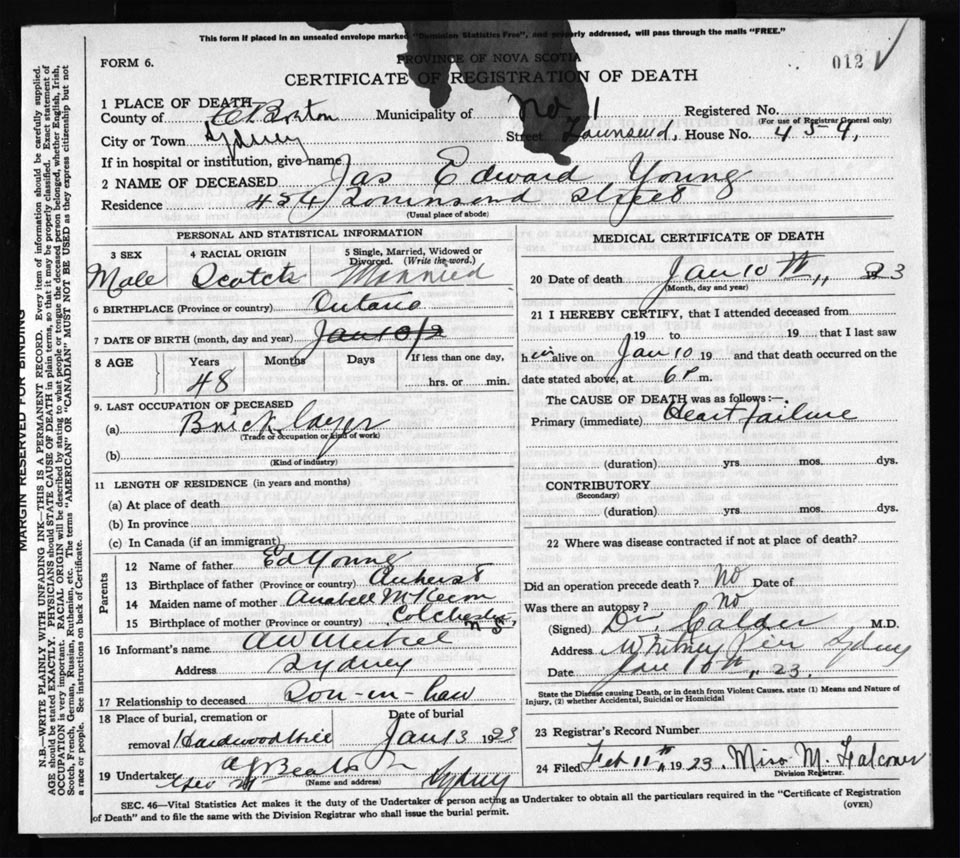 This form if placed in an unsealed envelope marked "Dominion Statistics Free", and properly addressed, will pass through the mails "FREE."
FORM 6.
PROVINCE OF NOVA SCOTIA
012 ✓
CERTIFICATE OF REGISTRATION OF DEATH
1 PLACE OF DEATH
County of C. Breton Municipality of No 1 Registered No.
(For use of Registrar General only)
City or Town Sydney Street Townsend, House No. 454,
If in hospital or institution, give name
2 NAME OF DECEASED Jas Edward Young
Residence 454 Townsend Street
(Usual place of abode)
PERSONAL AND STATISTICAL INFORMATION
3 SEX 4 RACIAL ORIGIN 5 Single, Married, Widowed or Divorced. (Write the word.)
Male Scotch Married
6 BIRTHPLACE (Province or country) Ontario
7 DATE OF BIRTH (month, day and year) Jan 10/2
8 AGE Years Months Days If less than one day,
48 hrs. or min.
9. LAST OCCUPATION OF DECEASED
(a) Brick layer
(Trade or occupation or kind of work)
(b)
(Kind of industry)
11 LENGTH OF RESIDENCE (in years and months)
(a) At place of death
(b) In province
(c) In Canada (if an immigrant)
Parents
12 Name of father Ed Young
13 Birthplace of father (Province or country) Amherst
14 Maiden name of mother Anabell McKeen
15 Birthplace of mother (Province or country) Colchester N S
16 Informant's name
Address Sydney
17 Relationship to deceased Son-in-Law
18 Place of burial, cremation or Date of burial
removal Hardwood Hill Jan 13 1923
19 Undertaker A J Beaton Sydney
(Name and address)
MEDICAL CERTIFICATE OF DEATH
20 Date of death Jan 10th, 23
(Month, day and year)
21 I HEREBY CERTIFY, that I attended deceased from
19 to 19 that I last saw
him alive on Jan 10 19 and that death occurred on the
date stated above, at 6 P m.
The CAUSE OF DEATH was as follows:—
Primary (immediate) Heart failure
(duration) yrs. mos. dys.
CONTRIBUTORY
(Secondary)
(duration) yrs. mos. dys.
22 Where was disease contracted if not at place of death?
Did an operation precede death? No Date of
Was there an autopsy? No
(Signed) Dr. Calder M.D.
Address Whitney Pier Sydney
Date Jan 10th, 23.
State the Disease causing Death, or in death from Violent Causes, state (1) Means and Nature of Injury, (2) whether Accidental, Suicidal or Homicidal
23 Registrar's Record Number
24 Filed Feb 11th 1923 Miss M. Falconer
Division Registrar.
SEC. 46—Vital Statistics Act makes it the duty of the Undertaker or person acting as Undertaker to obtain all the particulars required in the "Certificate of Registration
of Death" and to file the same with the Division Registrar who shall issue the burial permit.
(OVER)
MARGIN RESERVED FOR BINDING
N.B.—WRITE PLAINLY WITH UNFADING INK—THIS IS A PERMANENT RECORD. Every item of information should be carefully supplied.
AGE should be stated EXACTLY. PHYSICIANS should STATE CAUSE OF DEATH in plain terms, so that it may be properly classified. Exact statement of
OCCUPATION is very important. RACIAL ORIGIN will be described by stating to what people or tongue the deceased person belonged, whether English, Irish,
Scotch, French, German, Russian, Ruthenian, etc. The terms "AMERICAN" OR "CANADIAN" MUST NOT BE USED as they express citizenship but not
a race or people. See instructions on back of Certificate.